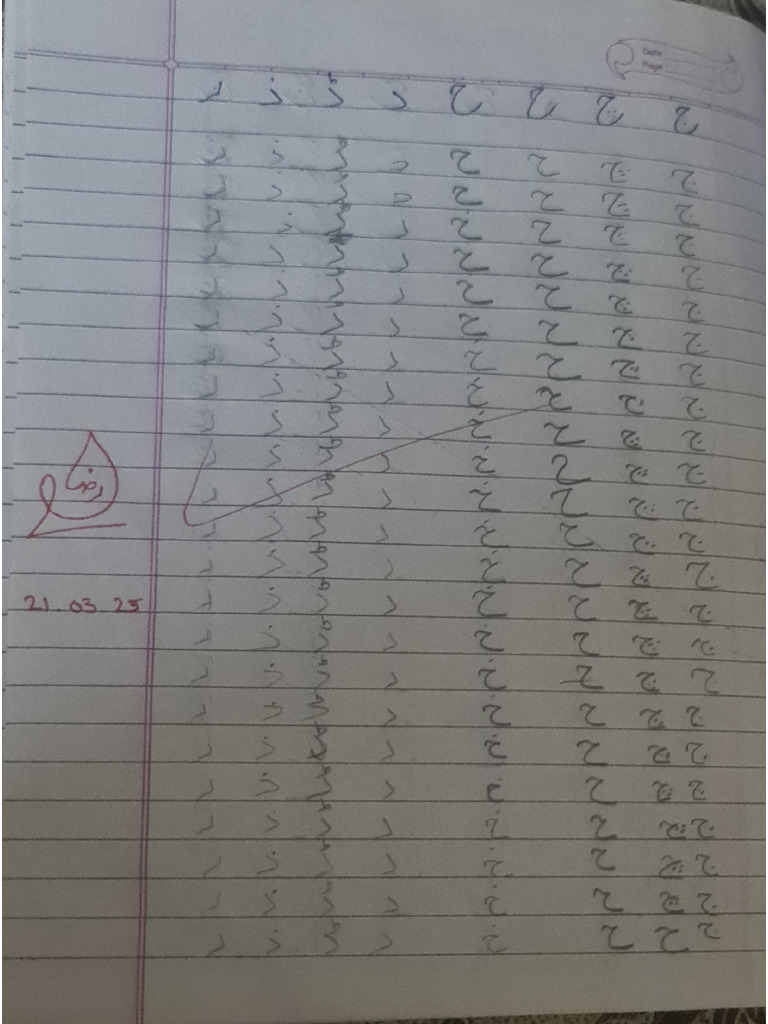 Date
Page
ج چ ح خ د ڈ ذ ر
ج چ ح خ د ڈ ذ ر
ج چ ح خ د ڈ ذ ر
ج چ ح خ د ڈ ذ ر
ج چ ح خ د ڈ ذ ر
ج چ ح خ د ڈ ذ ر
ج چ ح خ د ڈ ذ ر
ج چ ح خ د ڈ ذ ر
ج چ ح خ د ڈ ذ ر
ج چ ح خ د ڈ ذ ر
ج چ ح خ د ڈ ذ ر
ج چ ح خ د ڈ ذ ر
رضا
ج چ ح خ د ڈ ذ ر
ج چ ح خ د ڈ ذ ر
21.03.25
ج چ ح خ د ڈ ذ ر
ج چ ح خ د ڈ ذ ر
ج چ ح خ د ڈ ذ ر
ج چ ح خ د ڈ ذ ر
ج چ ح خ د ڈ ذ ر
ج چ ح خ د ڈ ذ ر
ج چ ح خ د ڈ ذ ر
ج چ ح خ د ڈ ذ ر
ج چ ح خ د ڈ ذ ر
ج چ ح خ د ڈ ذ ر